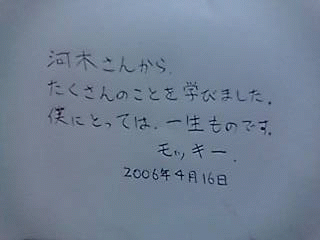 河木さんから、
たくさんのことを学びました。
僕にとっては、一生ものです。
モッキー.
2006年4月16日